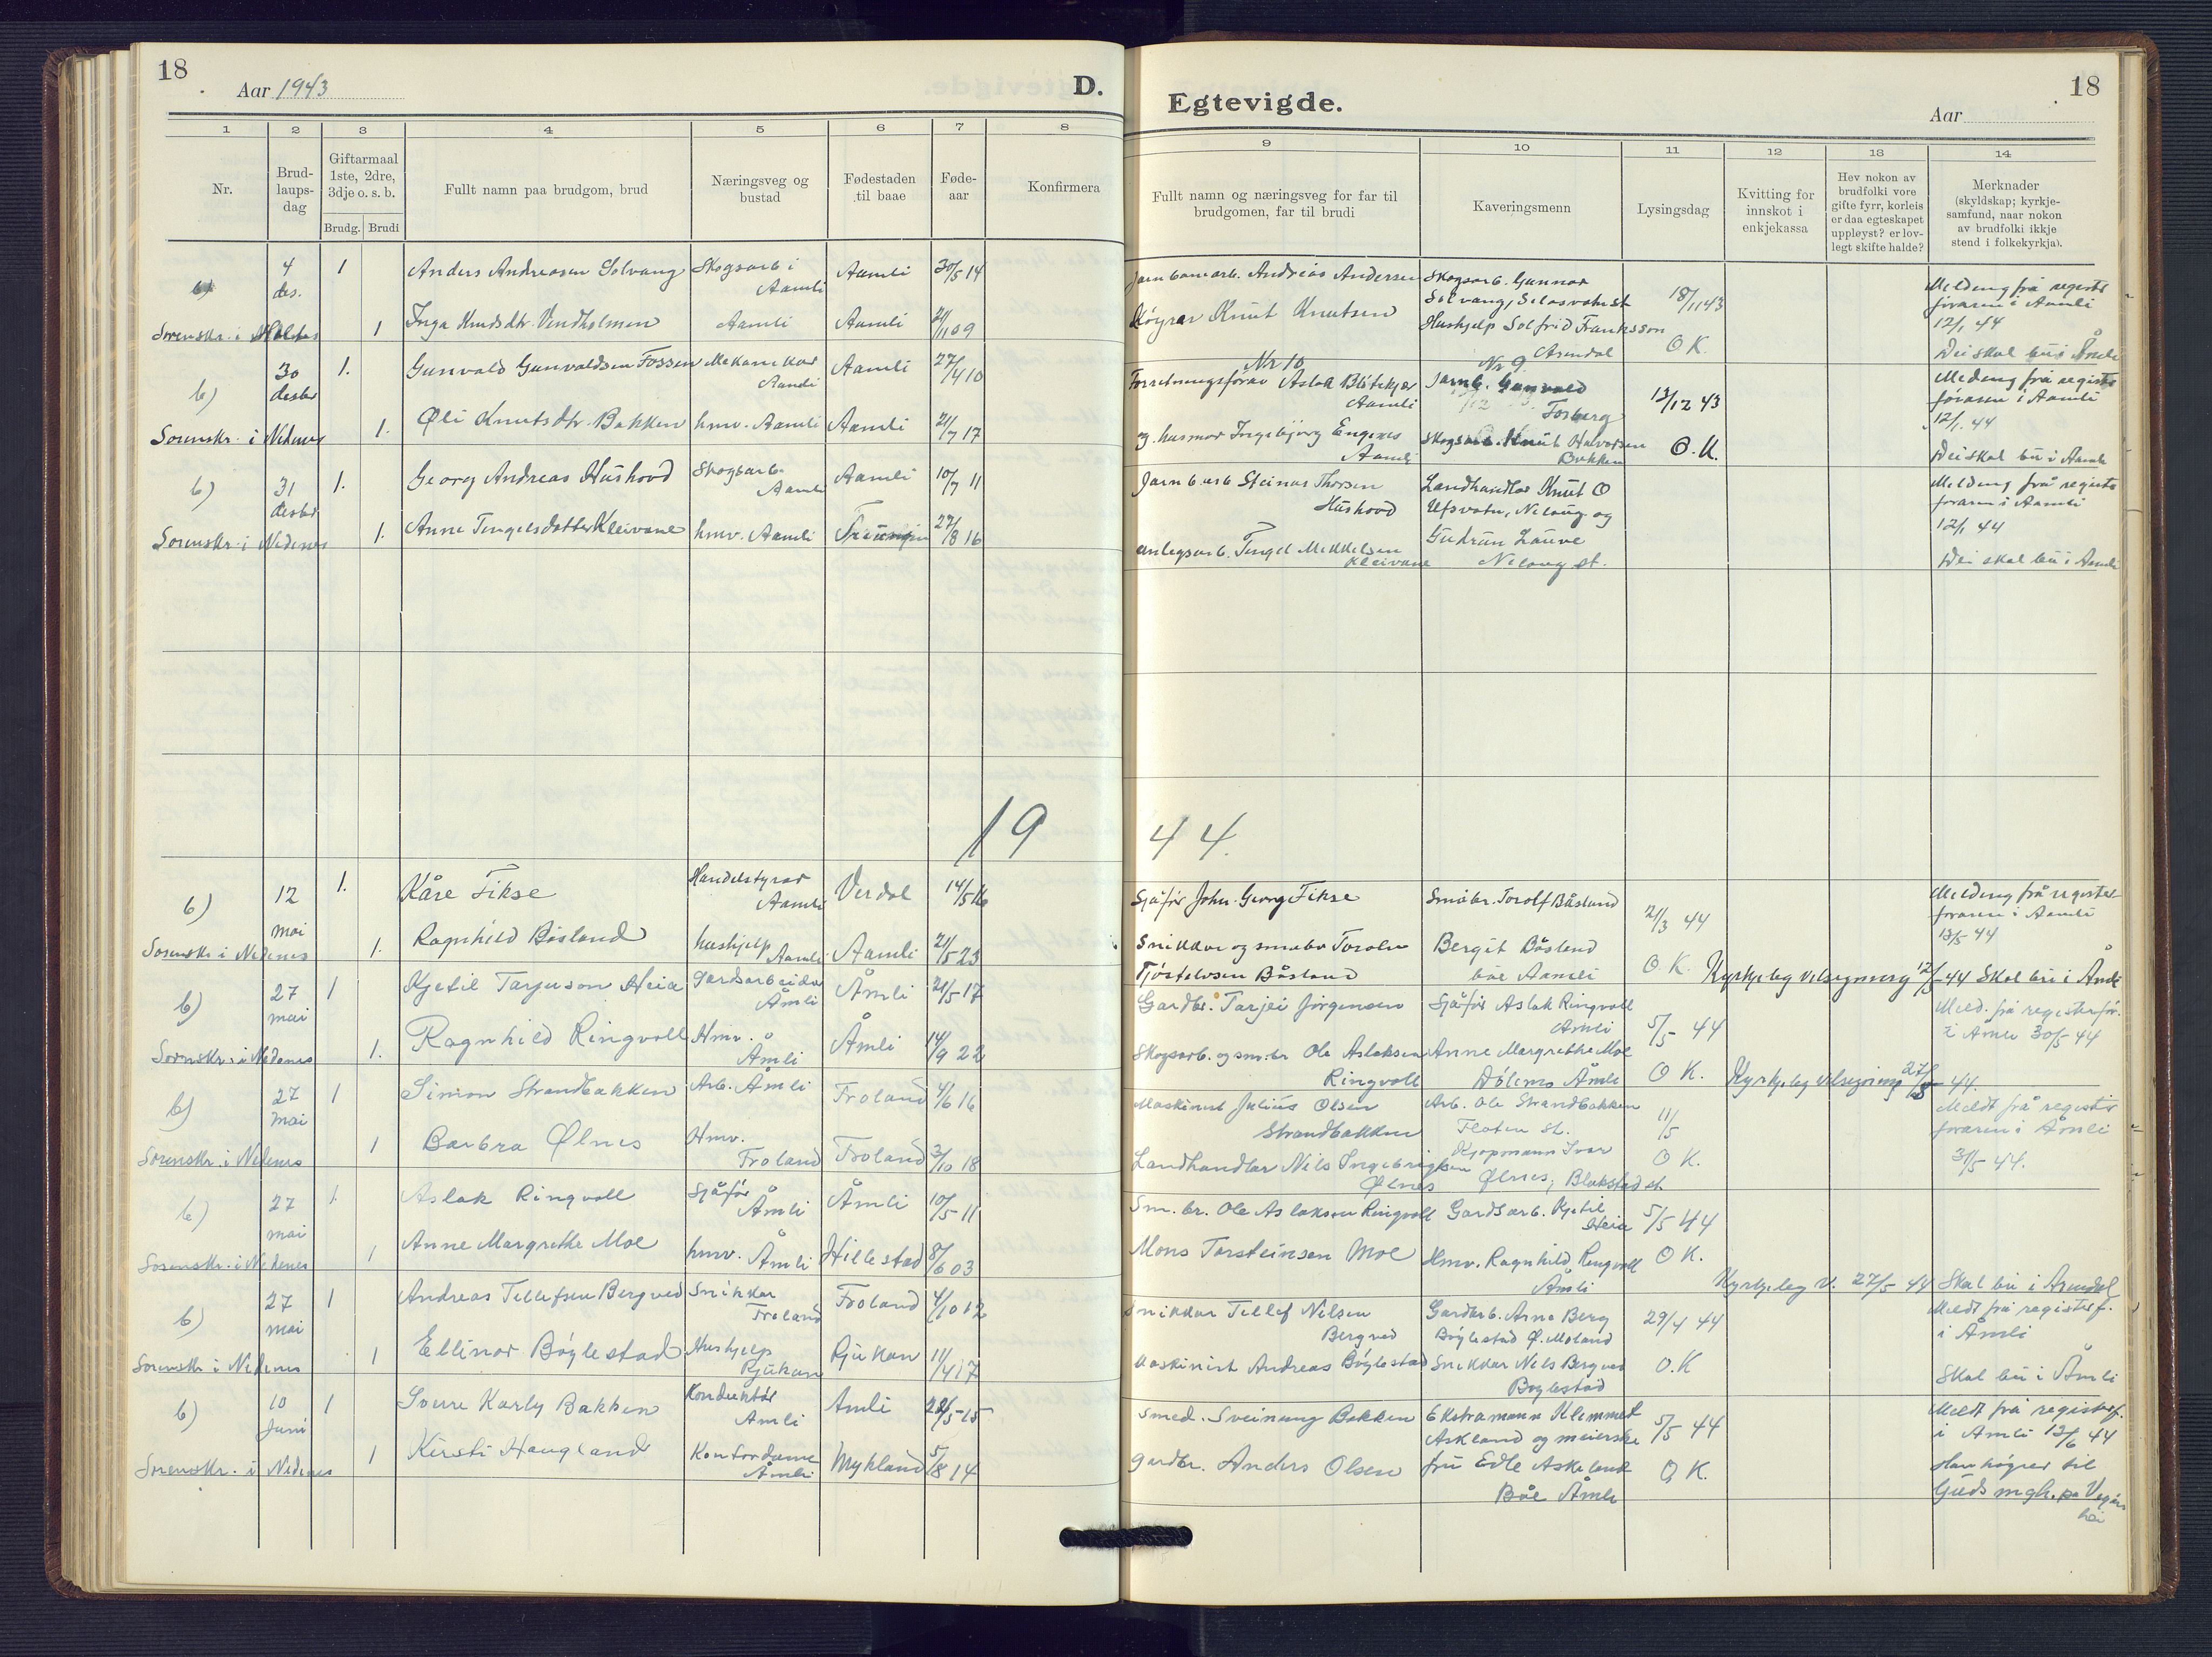 18
Aar 1943
D.
Egtevigde.
18
Aar
1 2 3 4 5 6 7 8
9 10 11 12 13 14
Nr.
Brud-
laups-
dag
Giftarmaal
1ste, 2dre,
3dje o. s. b.
Brudg. Brudi
Fullt namn paa brudgom, brud
Næringsveg og
bustad
Fødestaden
til baae
Føde-
aar
Konfirmera
Fullt namn og næringsveg for far til
brudgomen, far til brudi
Kaveringsmenn
Lysingsdag
Kvitting for
innskot i
enkjekassa
Hev nokon av
brudfolki vore
gifte fyrr, korleis
er daa egteskapet
uppløyst? er lov-
legt skifte halde?
Merknader
(skyldskap; kyrkje-
samfund, naar nokon
av brudfolki ikkje
stend i folkekyrkja).
b)
4
des.
1
Anders Andreasen Solvang
Skogsarb i
Aamli
Aamli
30/5 14
Jarnbanearb. Andreas Andersen
Skogsarb. Gunnar
Solvang, Selåsvatn st
18/11 43
Melding frå registr
føraren i Aamli
12/1 44
Sorenskr. i
1
Inga Knudsdtr. Vindholmen
Aamli
Aamli
21/1 09
Knut Knutsen
Hushjelp Solfrid Franksson
Arendal
O K.
Dei skal bu i Åmli
b)
30
desbr
1.
Gunvald Gunvaldsen Fossen
Mekanikar
Aamli
Aamli
27/4 10
Nr 10
Forretningsførar Aslak Blötekjær
Aamli
Nr 9
Jarnb. Gunvald
Fosberg
13/12 43
Melding frå registr
føraren i Aamli
12/1. 44
Sorenskr. i Nedenes
1.
Øli Knutsdtr. Bakken
hmv. Aamli
Aamli
21/7 17
og husmor Ingebjørg Engenes
Aamli
Skogsarb. Knut Halvorsen
Bakken
O. K.
Dei skal bu i Aamli
b)
31
desbr
1.
Georg Andreas Hushovd
Skogsarb.
Aamli
Aamli
10/7 11
Jarnb arb Steinar Thorsen
Hushovd
Landhandlar Knut O
Ufsvatn, Nelaug og
Melding frå registr
føraren i Aamli
12/1 44
Sorenskr. i Nedenes
1.
Anne Tengelsdatter Kleivane
hmv. Aamli
27/8 16
anlegsarb. Tengel Mikkelsen
Kleivane
Gudrun Lauve
Nelaug st.
Dei skal bu i Aamli
19 44.
b)
12
mai
1.
Kåre Fikse
Handelstyrar
Aamli
Verdal
14/5 16
Sjåfør John Georg Fikse
Småbr. Torolf Båsland
21/3 44
Melding frå register-
føraren i Aamli
13/5 44
Sorenskr i Nedenes
1.
Ragnhild Båsland
hushjelp
Aamli
Aamli
21/5 23
Snikkar og småbr Torolv
Tjöstolvsen Båsland
Bergit Båsland
båe Aamli
O K.
Kyrkjeleg velsigning 12/5 44 Skal bu i Åmli
b)
27
mai
1
Kjetil Tarjeison Heia
Gardsarbeidar
Åmli
Åmli
21/5 17
Gardbr. Tarjei Jørgensen
Sjåfør Aslak Ringvoll
Åmli
5/5 44
Meld. frå registerfør.
i Åmli 30/5 44
Sorenskr. i Nedenes
1.
Ragnhild Ringvoll
Hmv.
Åmli
Åmli
14/9 22
Skogsarb. og sm.br Ole Aslaksen
Ringvoll
Anne Margrethe Moe
Dölemo Åmli
O K.
Kyrkjeleg velsigning 27/5 44.
b)
27
mai
1
Simon Strandbakken
Arb. Åmli
Froland
4/6 16
Maskinist Julius Olsen
Strandbakken
Arb. Ole Strandbakken
Flaten st.
11/5
Meldt frå register
føraren i Åmli
31/5 44.
Sorenskr. i Nedenes
1
Barbra Ølnes
Hmv.
Froland
Froland
3/10 18
Landhandlar Nils Ingebrigtsen
Ølnes
Kjøpmann Ivar
Ølnes, Blakstad st
O K.
b)
27
mai
1.
Aslak Ringvoll
Sjåfør
Åmli
Åmli
10/5 11
Sm. br. Ole Aslaksen Ringvoll
Gardsarb. Kjetil
Heia
5/5 44
Sorenskr. i Nedenes
1
Anne Margrethe Moe
hmv. Åmli
Hillestad
8/6 03
Mons Torsteinsen Moe
Hmv. Ragnhild Ringvoll
Åmli
O K.
Kyrkjeleg v. 27/5 44 Skal bu i Arendal
b)
27
mai
1
Andreas Tellefsen Bergved
Snikkar
Froland
Froland
4/10 12
Snikkar Tellef Nilsen
Bergved
Gardarb. Arne Berg
Bøylestad Ø. Moland
29/4 44
Meldt frå registerf.
i Åmli
Sorenskr i Nedenes
1
Ellinor Bøylestad
Hushjelp
Rjukan
Rjukan
11/4 17
Maskinist Andreas Bøylestad
Snikkar Nils Bergved
Bøylestad
O. K
Skal bu i Åmli
b)
10
Juni
1
Sverre Karly Bakken
Konduktør
Åmli
Åmli
28/5 15
Smed. Sveinung Bakken
Ekstramann Klemmet
Askland og meierske
5/5 44
Meldt frå registerf.
i Åmli 13/6 44
Sorenskr. i Nedenes
1
Kirsti Haugland
Kontordame
Åmli
Mykland
5/8 14
gardbr. Anders Olsen
fru Edle Askeland
Båe Åmli
O, K.
Han høyrer til
Guds mgh. på Vegårs
hei